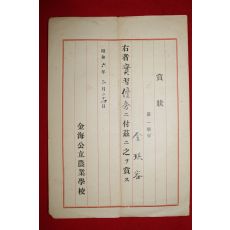 賞狀
第一學年
金
右者實習優秀ニ付茲ニ之ヲ賞ス
昭和六年三月二十四日
金海公立農業學校